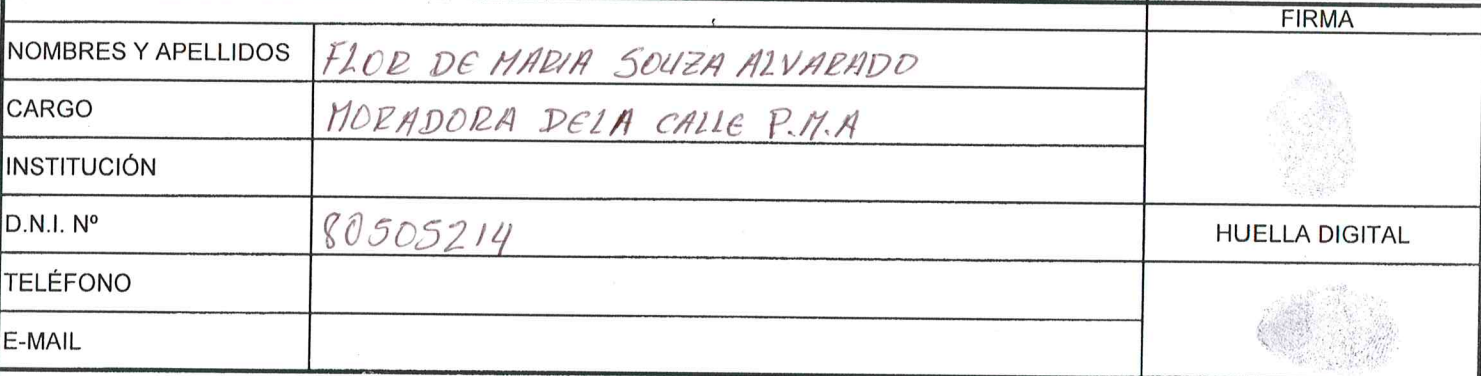 FIRMA
NOMBRES Y APELLIDOS FLOR DE MARIA SOUZA ALVARADO
CARGO MORADORA DELA CALLE P.M.A
INSTITUCIÓN
D.N.I. Nº 80505214
HUELLA DIGITAL
TELÉFONO
E-MAIL